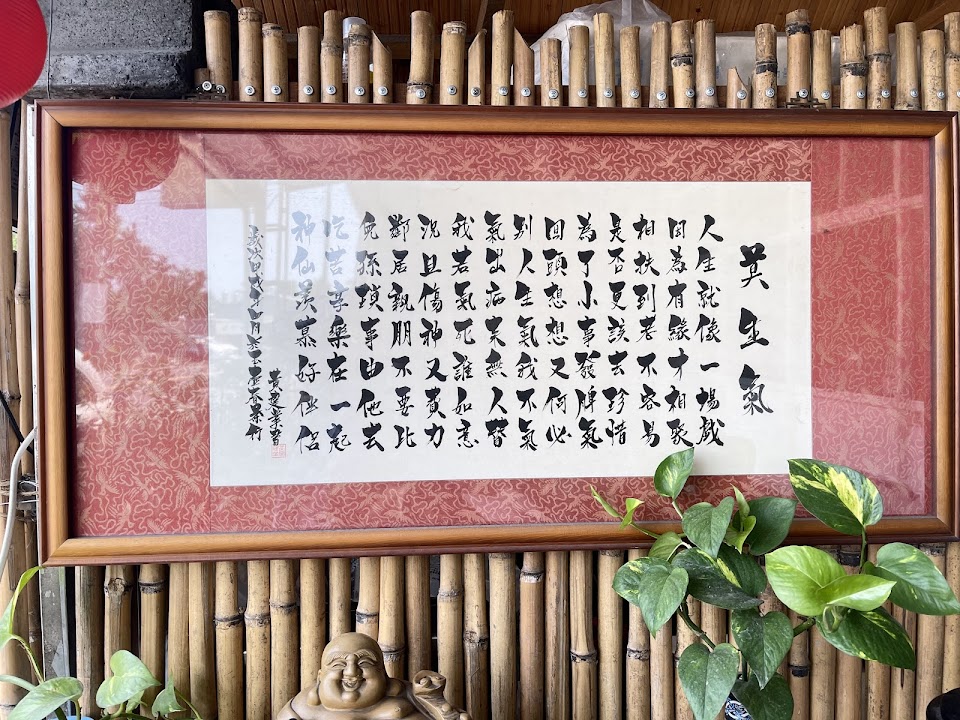 莫生氣
人生就像一場戲
因為有緣才相聚
相扶到老不容易
是否更該去珍惜
為了小事發脾氣
回頭想想又何必
別人生氣我不氣
氣出病來無人替
我若氣死誰如意
況且傷神又費力
鄰居親朋不要比
兒孫瑣事由他去
吃苦享樂在一起
神仙羨慕好伴侶
歲次